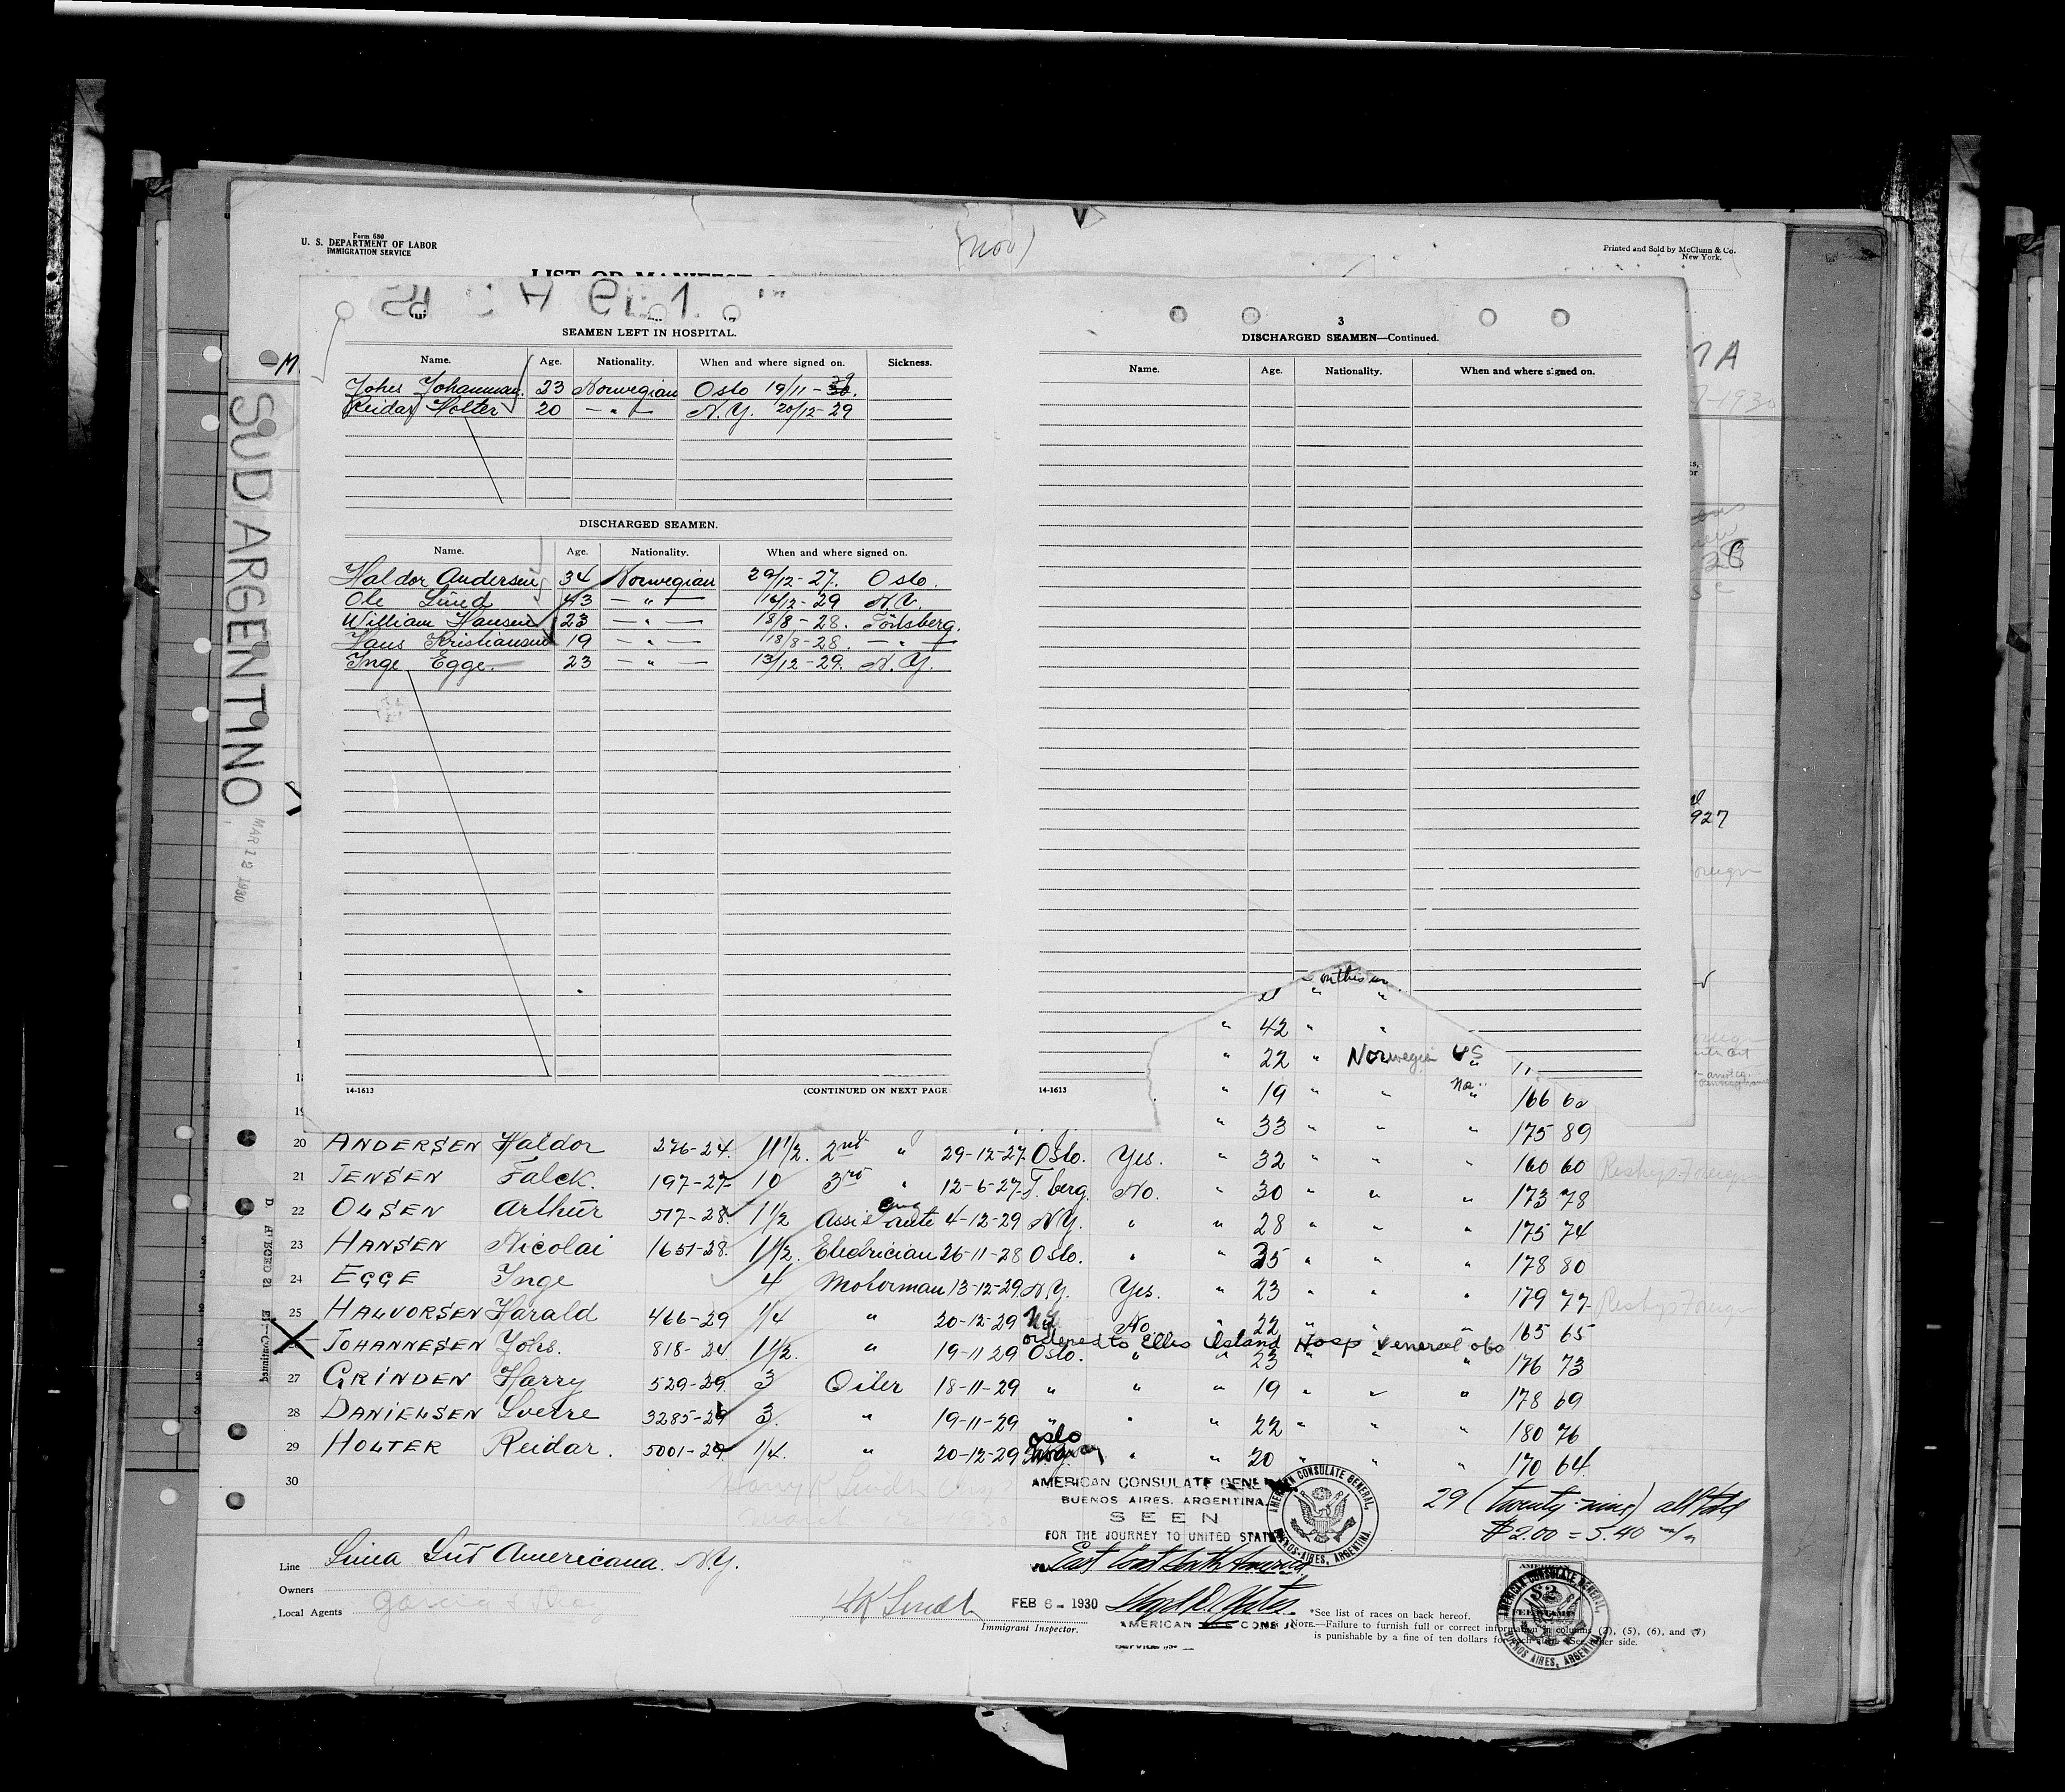 Form 680
U. S. DEPARTMENT OF LABOR
IMMIGRATION SERVICE
(Nov)
Printed and Sold by McClunn & Co.
New York.
LIST OR MANIFEST
SEAMEN LEFT IN HOSPITAL.
Name. Age. Nationality. When and where signed on. Sickness.
Johes Johannesen. 23 Norwegian Oslo 19/11-29.
Reidar Holter 20 — " — N.Y. 20/12-29
DISCHARGED SEAMEN.
Name. Age. Nationality. When and where signed on.
Haldor Andersen 34 Norwegian 29/12-27. Oslo.
Ole Lund 43 — " — 16/12-29 N.Y.
William Hansen 23 — " — 18/8-28. Tönsberg.
Hans Kristiansen 19 — " — 18/8-28. — " —
Inge Egge. 23 — " — 13/12-29. N.Y.
14-1613 (CONTINUED ON NEXT PAGE
3
DISCHARGED SEAMEN—Continued.
Name. Age. Nationality. When and where signed on.
14-1613
SUD ARGENTINO
MAR 12 1930
-1930
927
" 42 " "
" 22 " Norwegian US "
" 19 " " No " 166 60
19 " 33 " " " 175 89
20 ANDERSEN Haldor 276-24. 11 1/2. 2nd " 29-12-27. Oslo. Yes. " 32 " " " 160 60 Reship Foreign
21 JENSEN Falck. 197-27 10 3rd " 12-6-27. T.berg. No. " 30 " " " 173 78
22 OLSEN Arthur 517-28. 1 1/2 Assis eng 4-12-29 N.Y. " " 28 " " " 175 74
23 HANSEN Nicolai 1651-28. 1 1/2. Electrician 26-11-28 Oslo. " " 35 " " " 178 80
24 EGGE Inge 4 Motorman 13-12-29. N.Y. Yes. " 23 " " " 179 77 Reship Foreign
25 HALVORSEN Harald 466-29 1/4 " 20-12-29 N.Y. No " 22 " " " 165 65
ordered to Ellis Island Hosp Venereal obs
JOHANNESEN Johs. 818-24 1 1/2. " 19-11 29 Oslo. " " 23 " " " 176 73
27 GRINDEN Harry 529-29. 3 Oiler 18-11-29 " " " 19 " " " 178 69
28 DANIELSEN Sverre 3285-29 3. " 19-11-29 " " " 22 " " " 180 76
29 HOLTER Reidar. 5001-29 1/4. " 20-12-29 Oslo " " 20 " " " 170 64
30
AMERICAN CONSULATE GENERAL
BUENOS AIRES, ARGENTINA.
SEEN
FOR THE JOURNEY TO UNITED STATES
East Coast South America
FEB 6 - 1930
AMERICAN CONSUL
AMERICAN CONSULATE GENERAL,
BUENOS-AIRES, ARGENTINA.
29 (twenty-nine) all told
$2.00 = 5.40 m/n
Line Linea Sud Americana. N.Y.
Owners
Local Agents Garcia & Diaz
Immigrant Inspector.
*See list of races on back hereof.
NOTE.—Failure to furnish full or correct information in columns (3), (5), (6), and (7)
is punishable by a fine of ten dollars for each alien. See other side.
AMERICAN
FEE STAMP
AMERICAN CONSULATE GENERAL,
BUENOS AIRES, ARGENTINA.